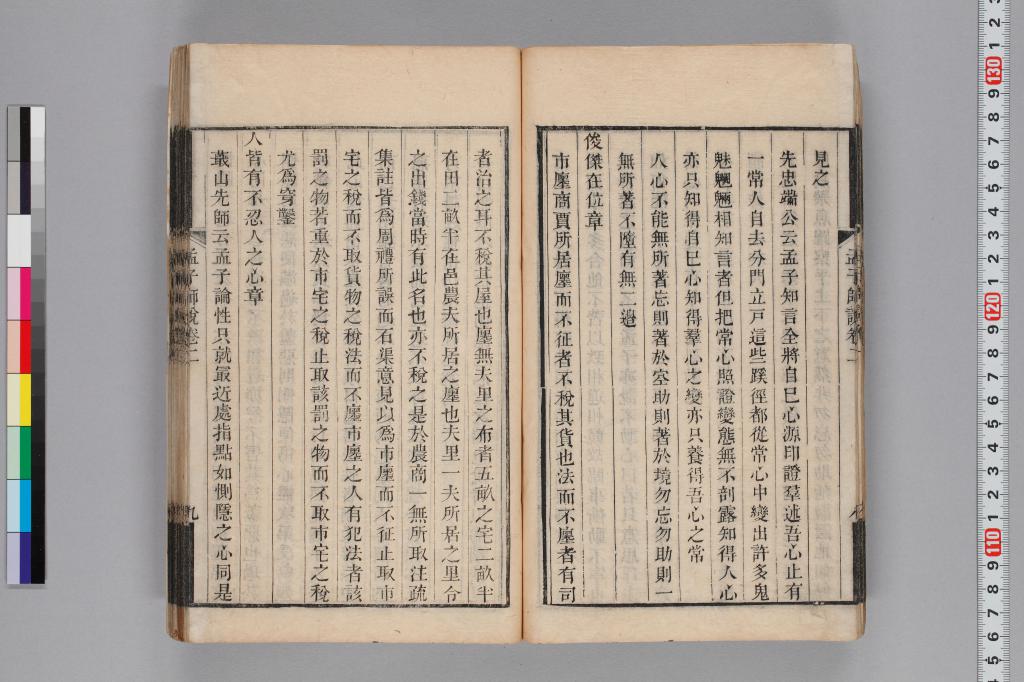 見之
先忠端公云孟子知言全將自已心源印證羣迷吾心止有
一常人自去分門立戸這些蹊徑都從常心中變出許多鬼
魅魍魎相知言者但把常心照證變態無不剖露知得人心
亦只知得自已心知得羣心之變亦只養得吾心之常
人心不能無所著忘則著於空助則著於境勿忘勿助則一
無所著不墮有無二邉
俊傑在位章
市廛商賈所居廛而不征者不稅其貨也法而不廛者有司
者治之耳不稅其屋也廛無夫里之布者五畝之宅二畝半
在田二畝半在邑農夫所居之廛也夫里一夫所居之里令
之出錢當時有此名也亦不稅之是於農商一無所取注疏
集註皆爲周禮所誤而石渠意見以爲市廛而不征止取市
宅之稅而不取貨物之稅法而不廛市廛之人有犯法者該
罰之物若重於市宅之稅止取該罰之物而不取市宅之稅
尤爲穿鑿
人皆有不忍人之心章
蕺山先師云孟子論性只就最近處指點如惻隱之心同是
孟子師說卷二
九